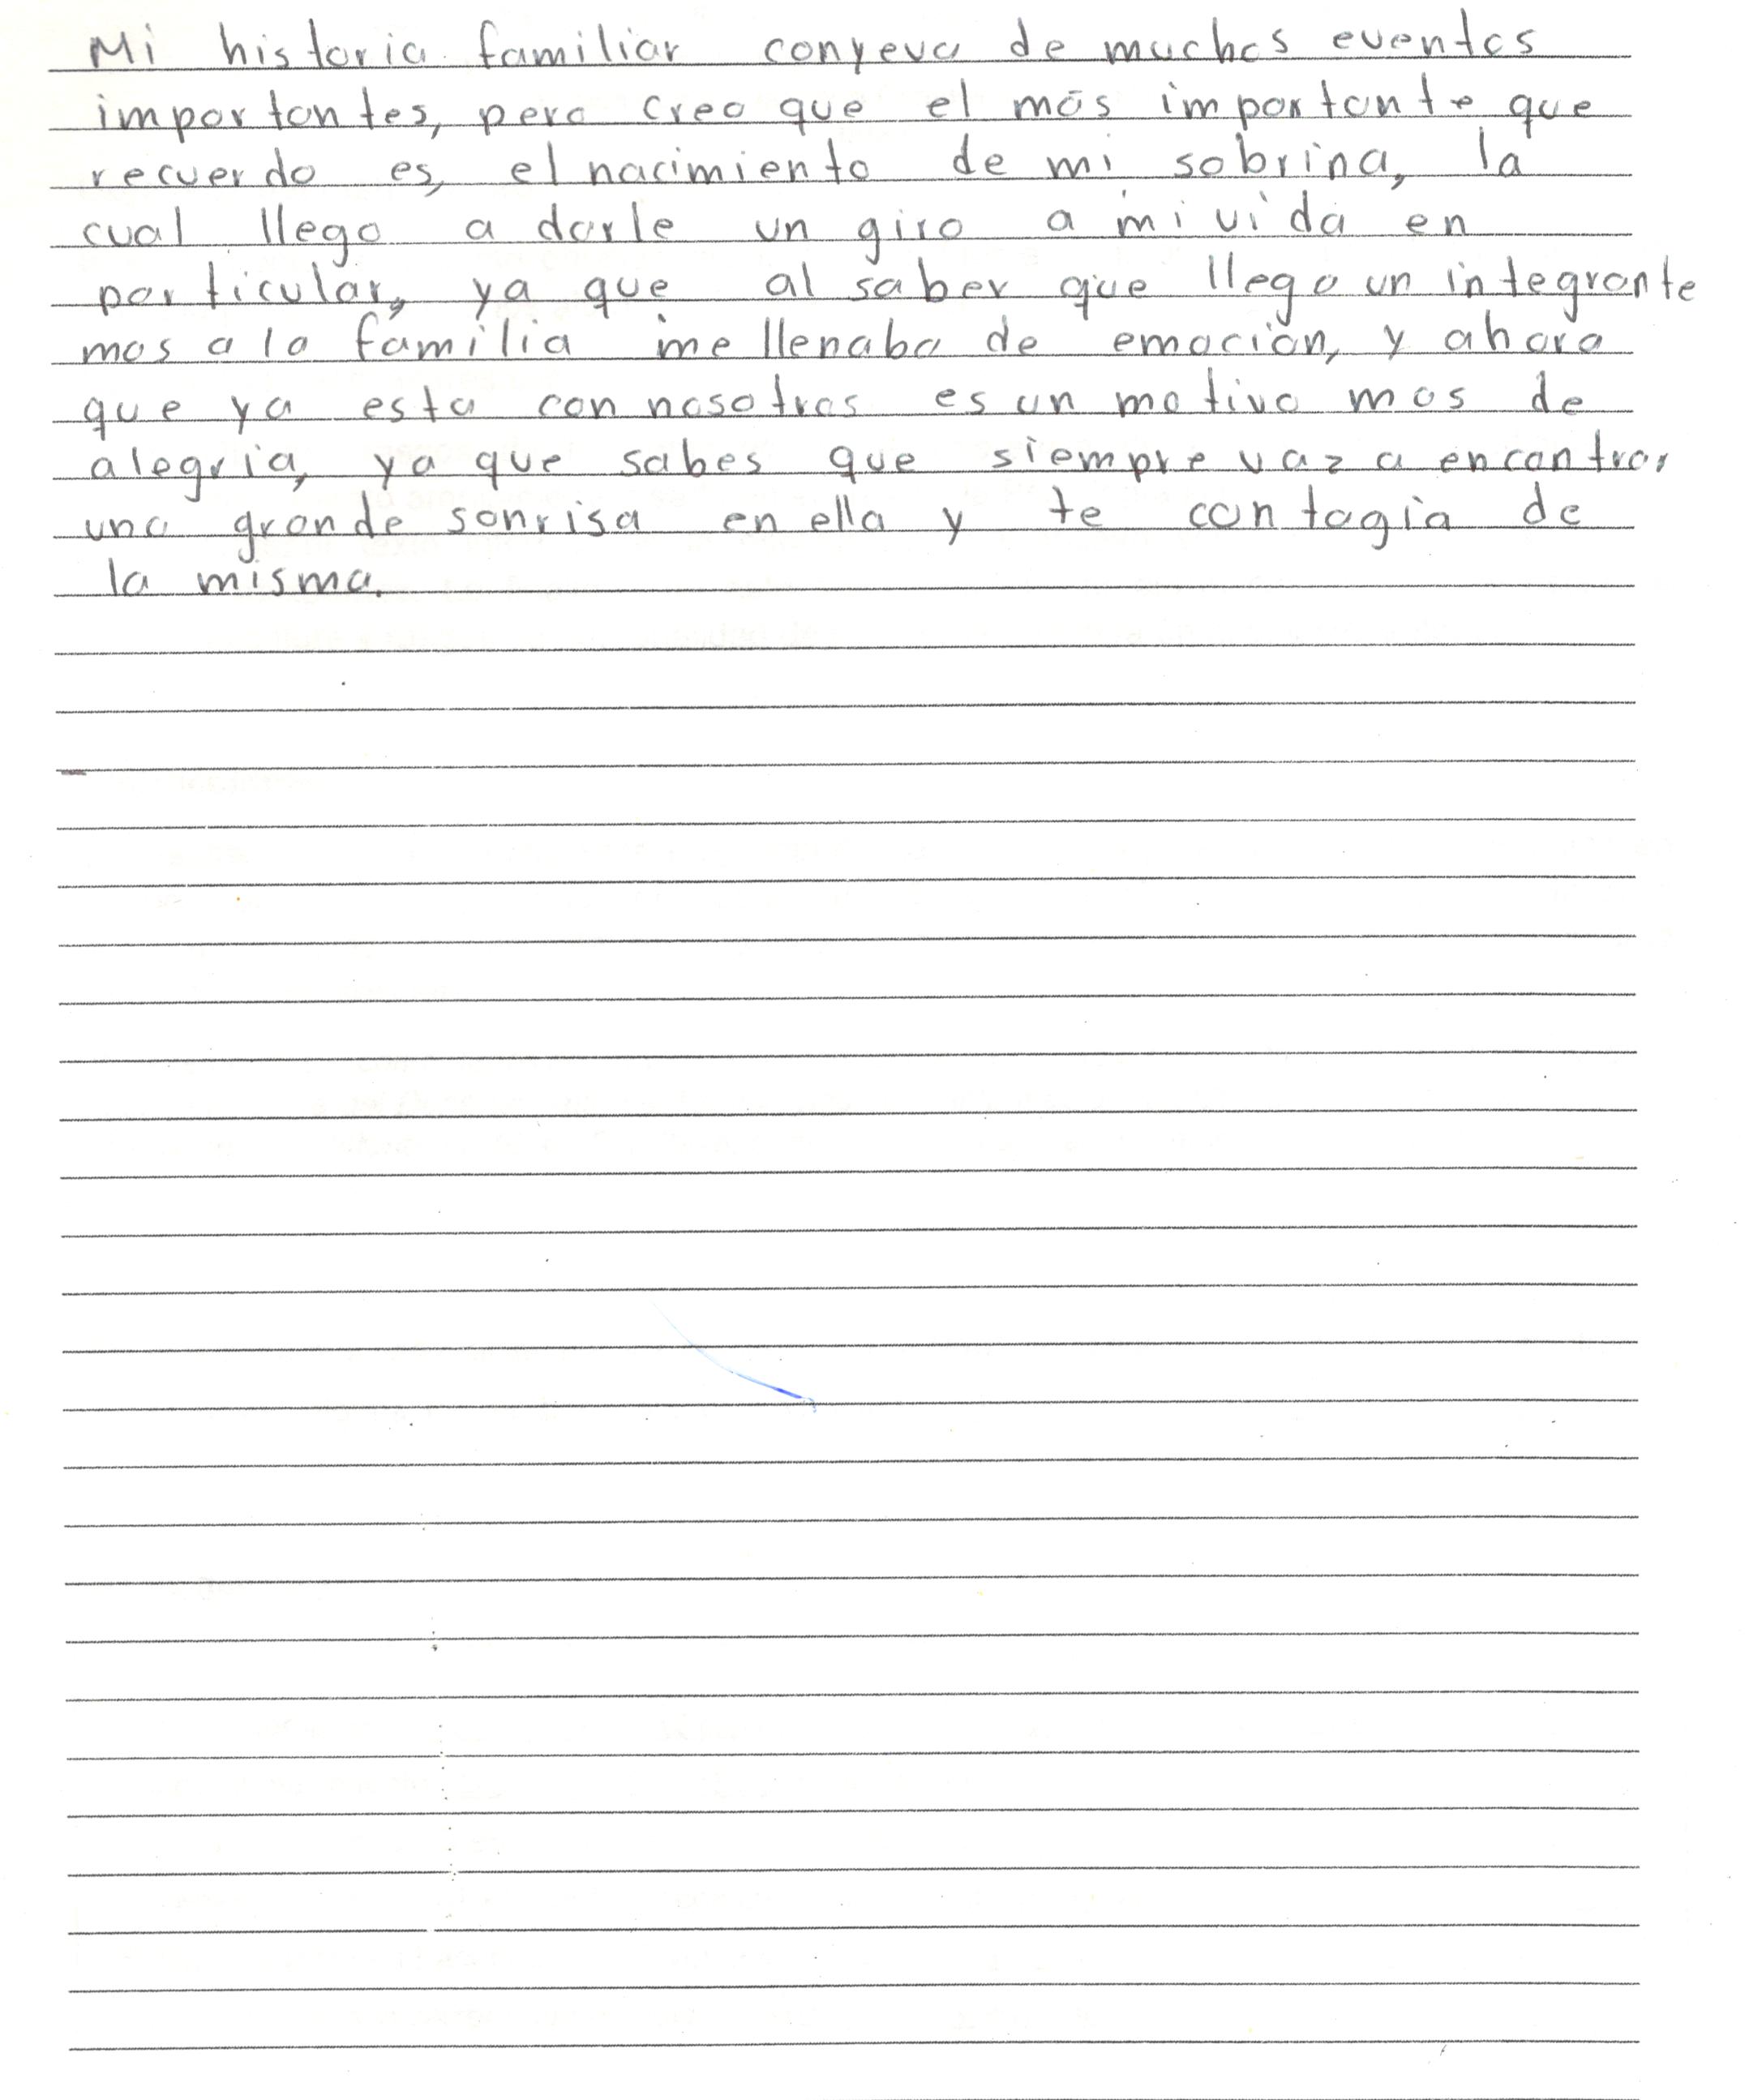 Mi historia familiar conyeva de muchos eventos
importantes, pero creo que el más importante que
recuerdo es, el nacimiento de mi sobrina, la
cual llego a darle un giro a mi vida en
particular, ya que al saber que llego un integrante
mas a la familia me llenaba de emoción, y ahora
que ya esta con nosotros es un motivo mas de
alegria, ya que sabes que siempre vaz a encontrar
una grande sonrisa en ella y te contagia de
la misma.